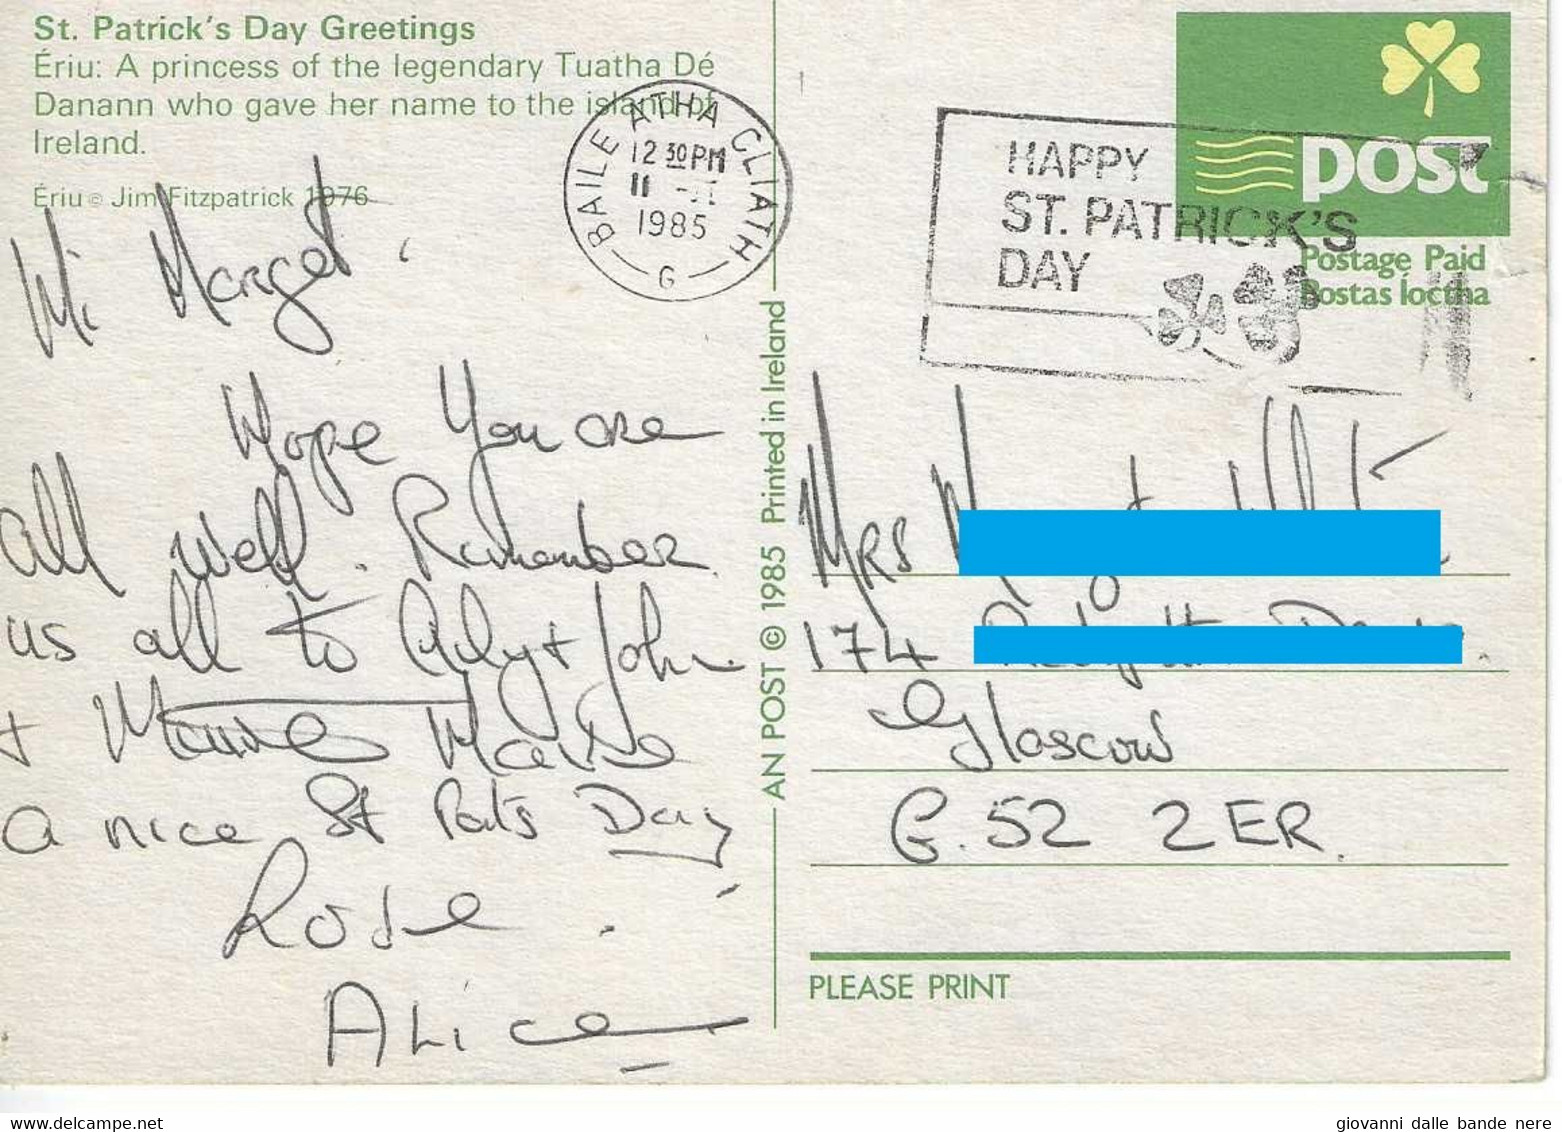 St. Patrick's Day Greetings
Ériu: A princess of the legendary Tuatha Dé
Danann who gave her name to the island of
Ireland.
Ériu © Jim Fitzpatrick 1976
BAILE ATHA CLIATH
12 30PM
11
1985
G
HAPPY
ST. PATRICK'S
DAY
post
Postage Paid
Postas íoctha
Hi Marget.
Hope You are
all well. Remember
us all to + John
+ Have
a nice St Pats Day
Rose.
ALice
AN POST © 1985 Printed in Ireland
MRS
174
Glascow
G.52 2ER.
PLEASE PRINT
giovanni dalle bande nere